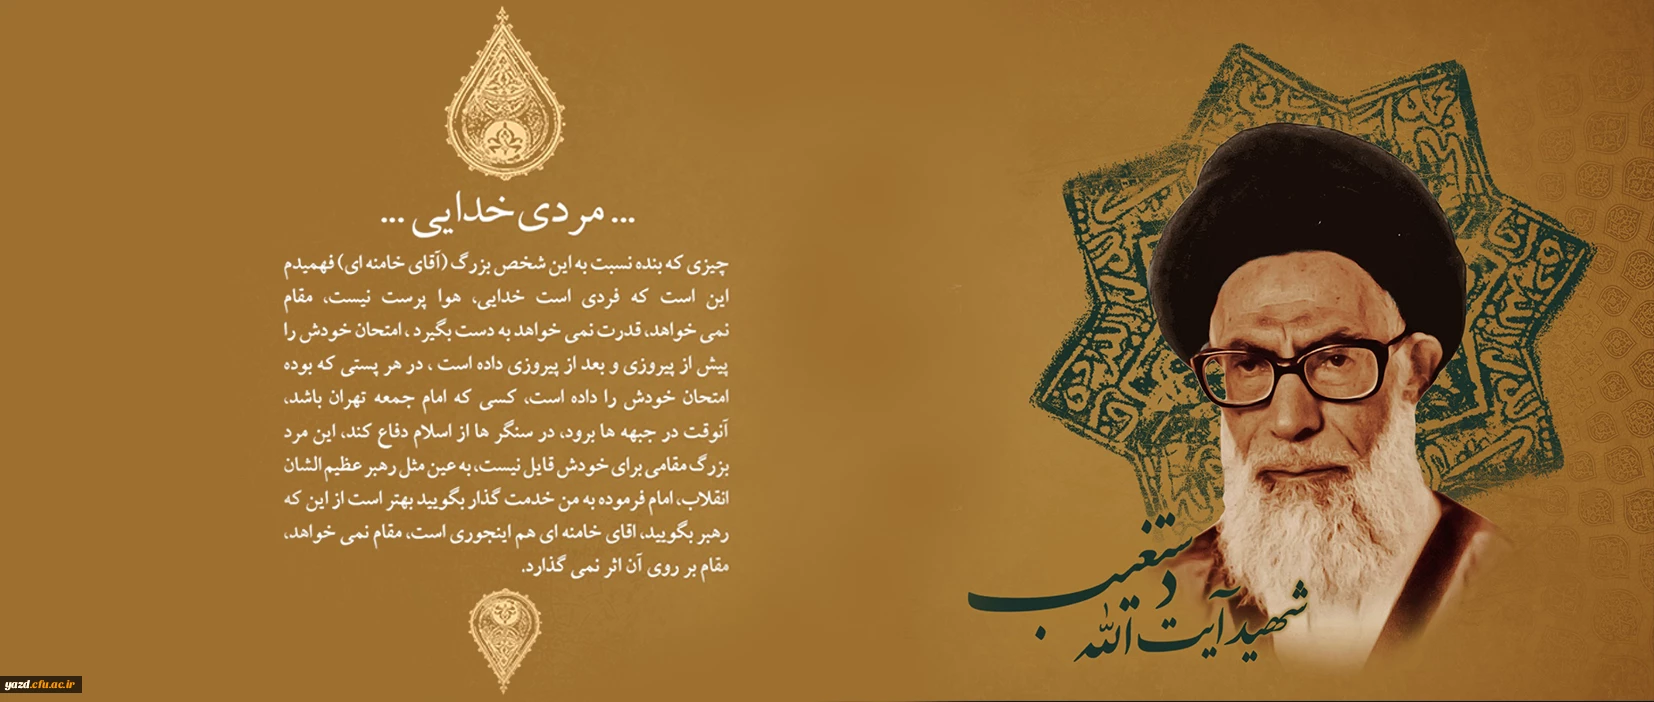 ... مردی خدایی ...
چیزی که بنده نسبت به این شخص بزرگ (آقای خامنه ای) فهمیدم
این است که فردی است خدایی، هوا پرست نیست، مقام
نمی خواهد، قدرت نمی خواهد به دست بگیرد ، امتحان خودش را
پیش از پیروزی و بعد از پیروزی داده است ، در هر پستی که بوده
امتحان خودش را داده است، کسی که امام جمعه تهران باشد،
آنوقت در جبهه ها برود، در سنگر ها از اسلام دفاع کند، این مرد
بزرگ مقامی برای خودش قایل نیست، به عین مثل رهبر عظیم الشان
انقلاب، امام فرموده به من خدمت گذار بگویید بهتر است از این که
رهبر بگویید، اقای خامنه ای هم اینجوری است، مقام نمی خواهد،
مقام بر روی آن اثر نمی گذارد.
شهید آیت الله
دستغیب
yazd.cfu.ac.ir